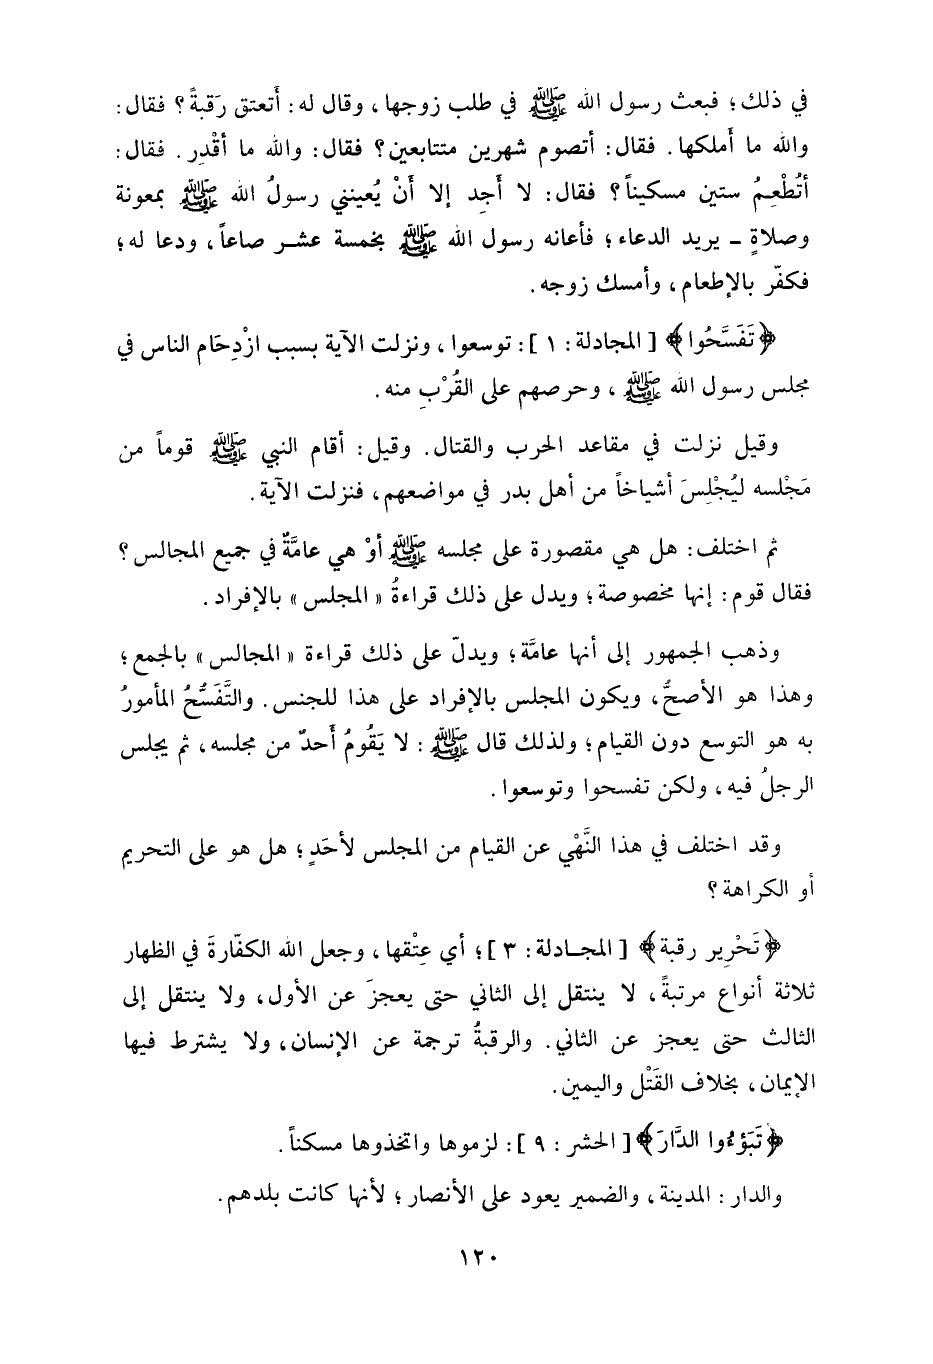 في ذلك؛ فبعث رسول الله ﷺ في طلب زوجها، وقال له: أَتعتق رَقبةً؟ فقال:
والله ما أَملكها. فقال: أتصوم شهرين متتابعين؟ فقال: والله ما أقْدِر. فقال:
أتُطْعِمُ ستين مسكيناً؟ فقال: لا أَجِد إلا أَنْ يُعينني رسولُ الله ﷺ بمعونة
وصلاةٍ ـ يريد الدعاء؛ فأعانه رسول الله ﷺ بخمسة عشر صاعاً، ودعا له؛
فكفّر بالإطعام، وأمسك زوجه.
﴿تَفَسَّحُوا﴾ [المجادلة: ١]: توسعوا، ونزلت الآية بسبب ازْدِحَام الناس في
مجلس رسول الله ﷺ، وحرصهم على القُرْبِ منه.
وقيل نزلت في مقاعد الحرب والقتال. وقيل: أقام النبي ﷺ قوماً من
مَجْلسه ليُجْلِسَ أشياخاً من أهل بدر في مواضعهم، فنزلت الآية.
ثم اختلف: هل هي مقصورة على مجلسه ﷺ أوْ هي عامَّةٌ في جميع المجالس؟
فقال قوم: إنها مخصوصة؛ ويدل على ذلك قراءةُ «المجلس» بالإفراد.
وذهب الجمهور إلى أنها عامَّة؛ ويدلّ على ذلك قراءة «المجالس» بالجمع؛
وهذا هو الأصحُّ، ويكون المجلس بالإفراد على هذا للجنس. والتَّفَسُّحُ المأمورُ
به هو التوسع دون القيام؛ ولذلك قال ﷺ: لا يَقُومُ أَحدٌ من مجلسه، ثم يجلس
الرجلُ فيه، ولكن تفسحوا وتوسعوا.
وقد اختلف في هذا النَّهْي عن القيام من المجلس لأحَدٍ؛ هل هو على التحريم
أو الكراهة؟
﴿تَحْرِير رقبة﴾ [المجادلة: ٣]؛ أي عِتْقها، وجعل الله الكفّارةَ في الظهار
ثلاثة أنواع مرتبةً، لا ينتقل إلى الثاني حتى يعجزَ عن الأول، ولا ينتقل إلى
الثالث حتى يعجز عن الثاني. والرقبةُ ترجمة عن الإنسان، ولا يشترط فيها
الإيمان، بخلاف القَتْل واليمين.
﴿تَبَوّءُوا الدَّارَ﴾ [الحشر: ٩]: لزموها واتخذوها مسكناً.
والدار: المدينة، والضمير يعود على الأنصار؛ لأنها كانت بلدهم.
١٢٠